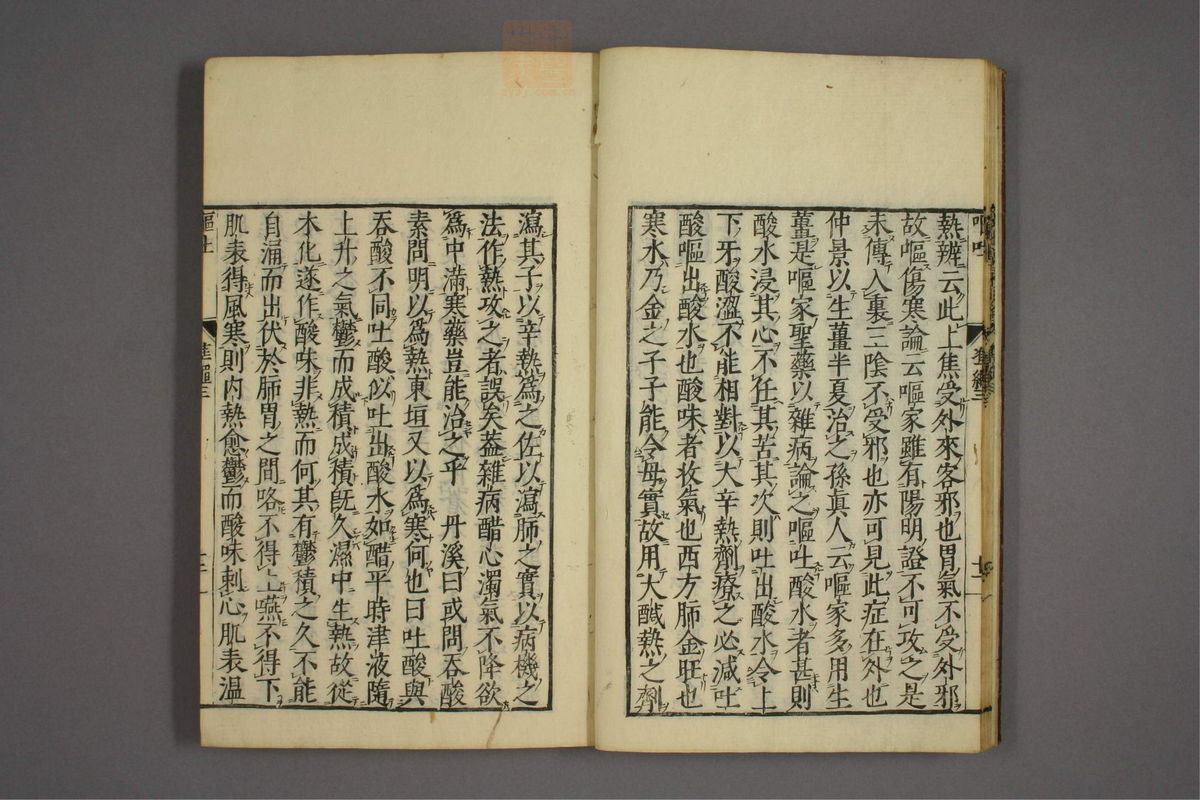 熱辨云此上焦受外來客邪也胃氣不受外邪
故嘔傷寒論云嘔家雖有陽明證不可攻之是
未傳入裏三陰不受邪也亦可見此症在外也
仲景以生薑半夏治之孫眞人云嘔家多用生
薑是嘔家聖藥以雜病論之嘔吐酸水者甚則
酸水浸其心不任其苦其次則吐出酸水令上
下牙酸澀不能相對以大辛熱劑療之必減吐
酸嘔出酸水也酸味者收氣也西方肺金旺也
寒水乃金之子子能令母實故用大醎熱之劑
瀉其子以辛熱爲之佐以瀉肺之實以病機之
法作熱攻之者誤矣葢雜病醋心濁氣不降欲
爲中滿寒藥豈能治之乎 丹溪曰或問吞酸
素問明以爲熱東垣又以爲寒何也曰吐酸與
吞酸不同吐酸似吐出酸水如醋平時津液隨
上升之氣鬱而成積成積旣久濕中生熱故從
木化遂作酸味非熱而何其有鬱積之久不能
自涌而出伏於肺胃之間咯不得上嚥不得下
肌表得風寒則内熱愈鬱而酸味刺心肌表温
嘔吐